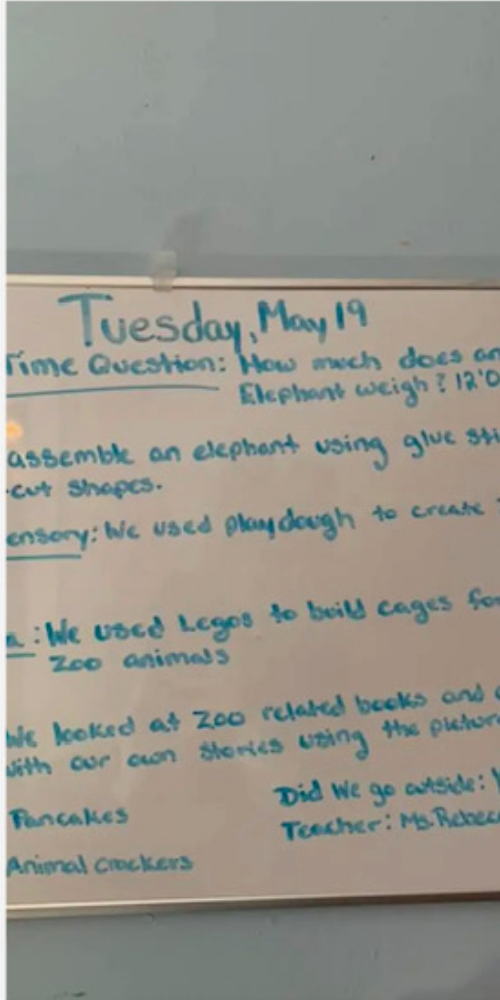 Tuesday, May 19
Time Question: How much does an
Elephant weigh? 12'0
assemble an elephant using glue sti
-cut shapes.
ensory: We used playdough to create
a: We used Legos to build cages for
Zoo animals
We looked at Zoo related books and
with our own stories using the pictur
Pancakes
Did We go outside:
Teacher: Ms. Rebec
Animal Crackers